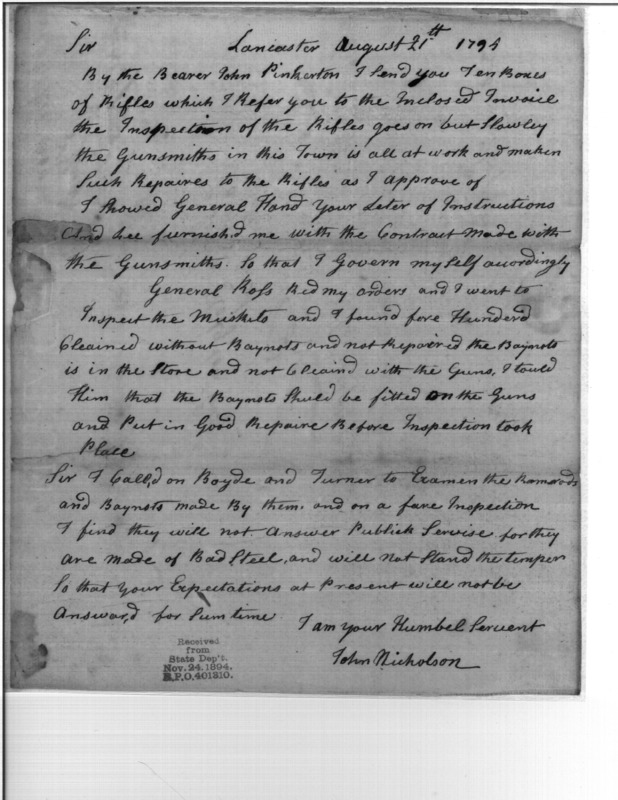 Sir Lancaster August 21th 1794
By the Bearer John Pinkerton I send you Ten Boxes
of Rifles which I Refer you to the Inclosed Invoice
the Inspection of the Rifles goes on but Slowley
the Gunsmiths in this Town is all at work and maken
Such Repaires to the Rifles as I approve of
I Showed General Hand Your Leter of Instructions
And hee furnish,d me with the Contract Made with
the Gunsmiths. So that I Govern my Self acordingly
General Ross Rid my orders and I went to
Inspect the Muskits and I found fore Hunderd
Cleained without Baynots and not Repaired the Baynots
is in the Store and not Cleaind with the Guns, I tould
Him that the Baynots Shuld be fitted on the Guns
and Put in Good Repaire Before Inspection took
Place
Sir I Call,d on Boyde and Turner to Examen the Ramrods
and Baynots made By them. and on a fare Inspection
I find they will not Answer Publick Servise for they
are made of Bad Steel, and will not Stand the temper
So that Your Expectations at Present will not be
Answar,d for Sum time
I am your Humbel Servent
John Nicholson
Received
from
State Dep't.
Nov. 24. 1894.
R.P.O. 401310.